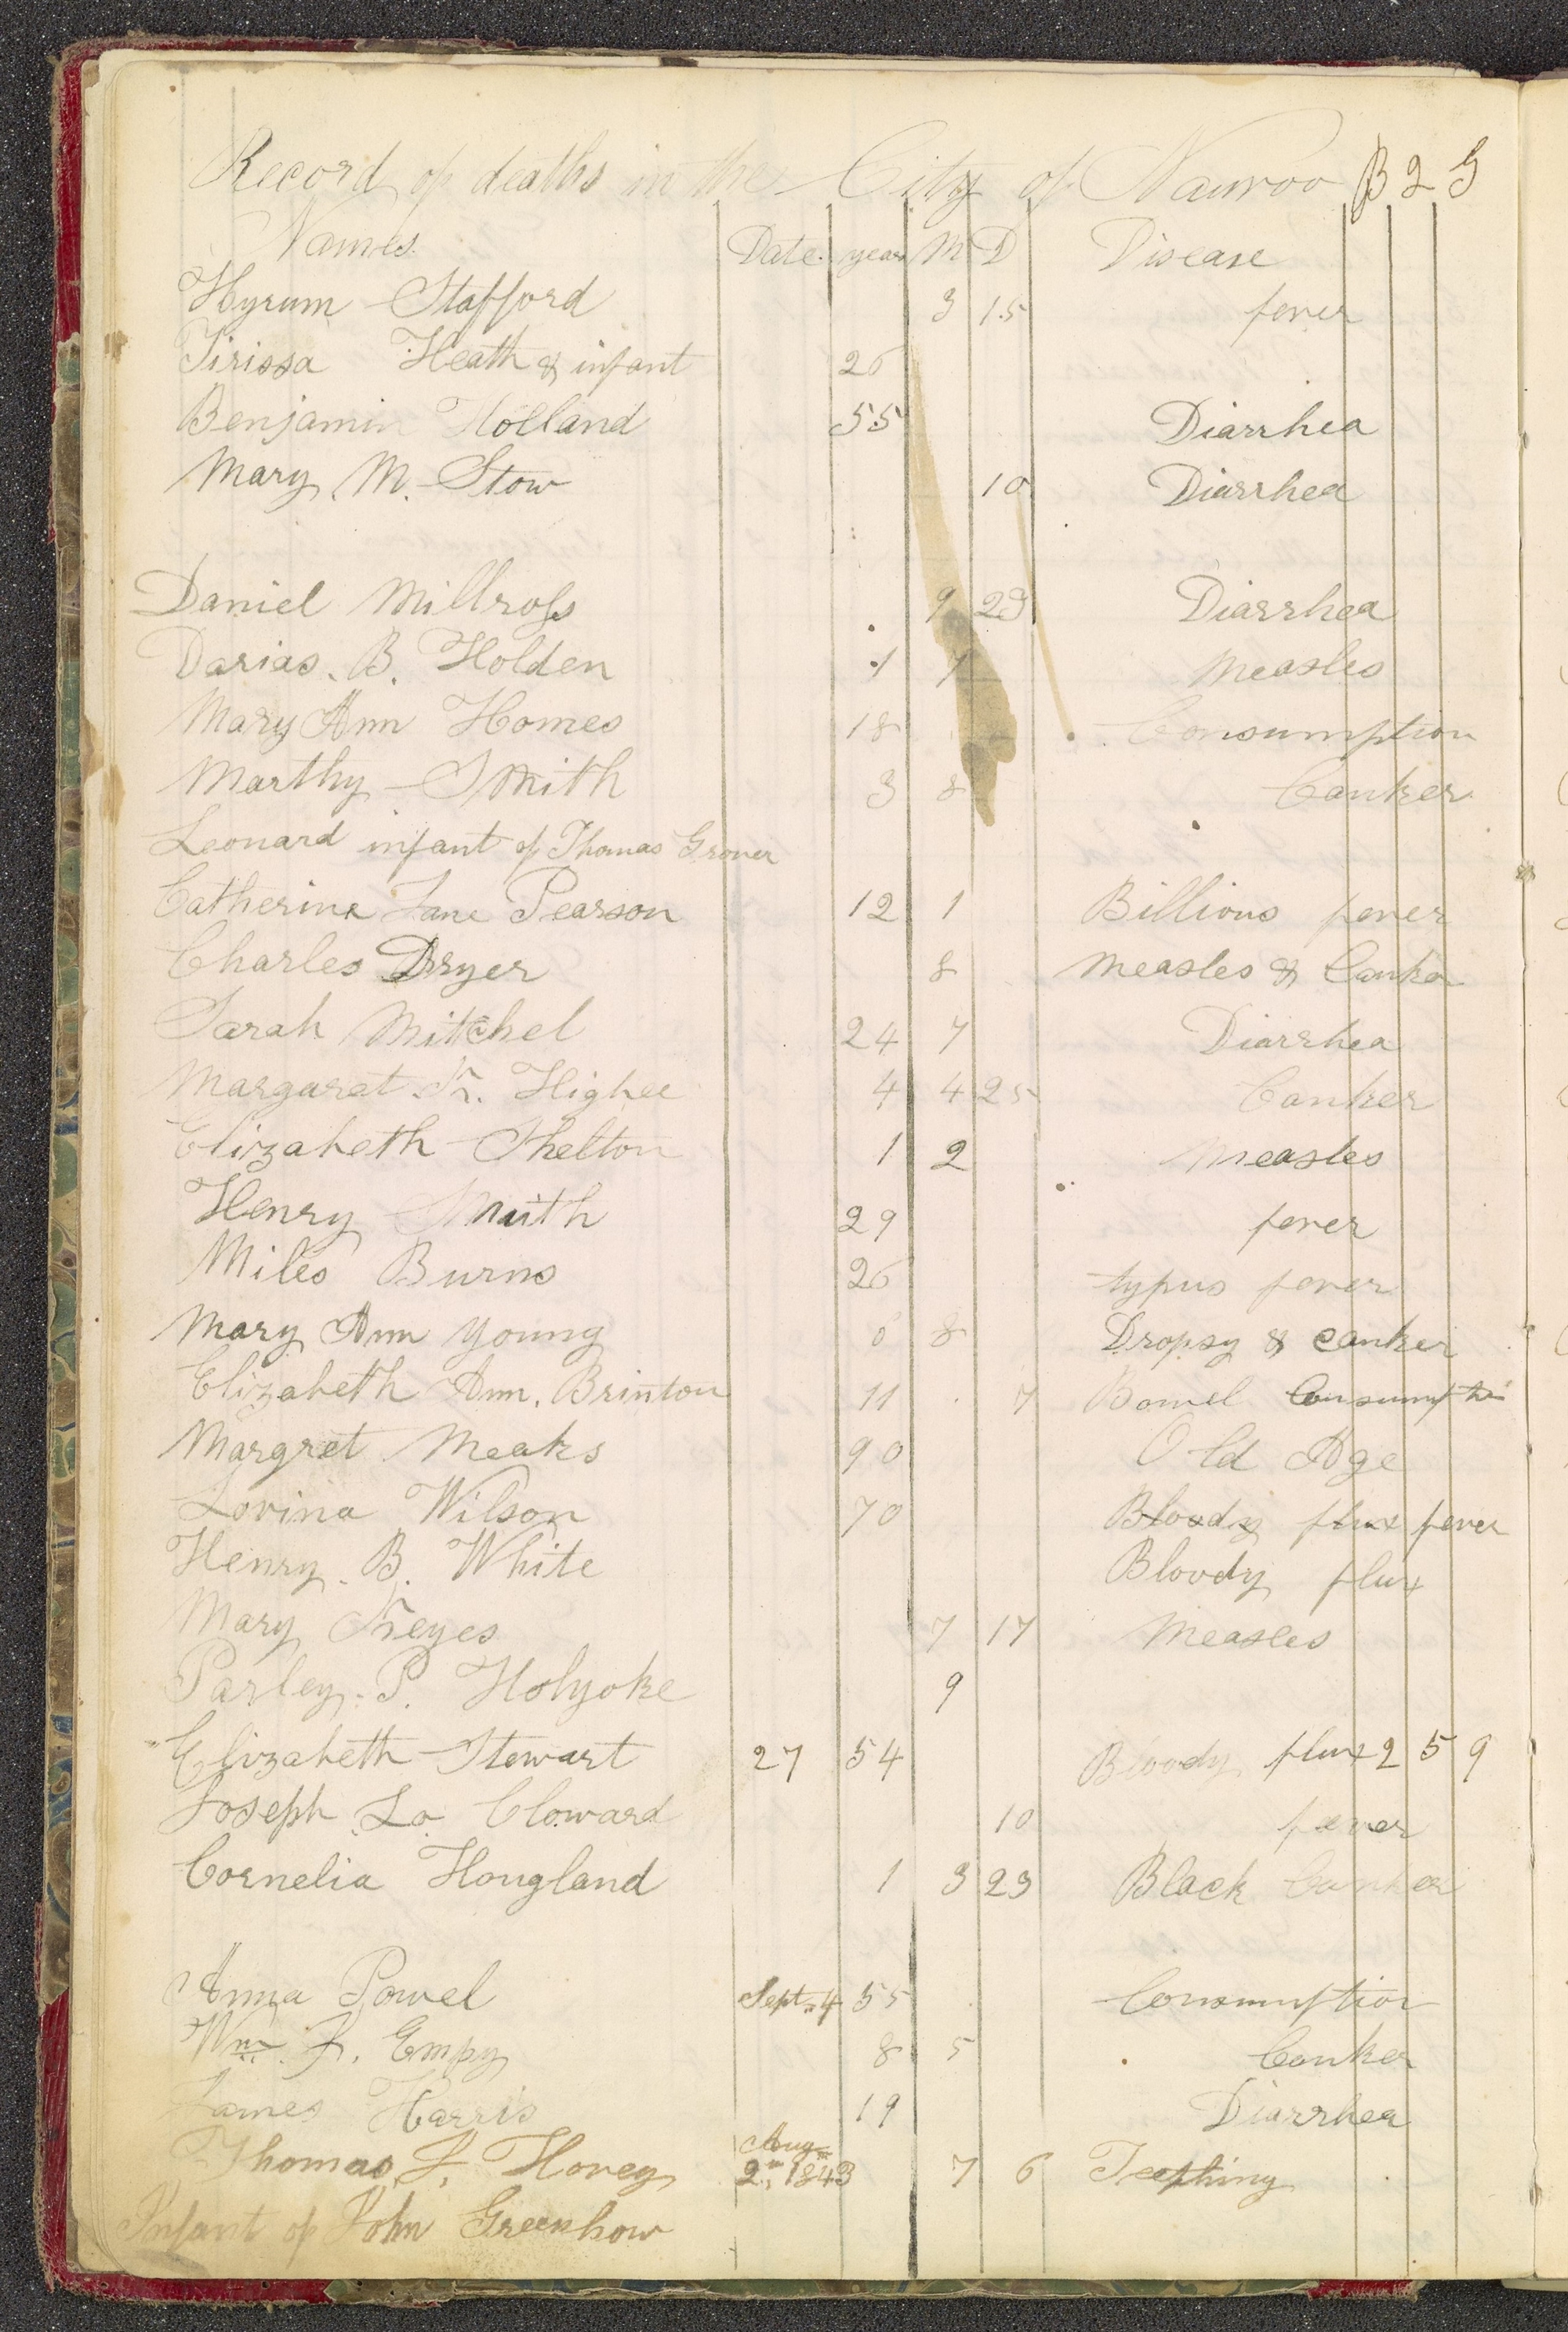 Record of deaths in the City of Nauvoo B 2 G
Names. Date. year M D Disease
Hyrum Stafford 3 15 fever
Tirissa Heath & infant 26
Benjamin Holland 55 Diarrhea
Mary M. Stow 10 Diarrhea
Daniel Millross 9 23 Diarrhea
Darias. B. Holden 1 7 Measles
Mary Ann Homes 18 Consumption
Marthy Smith 3 8 Canker
Leonard infant of Thomas Grover
Catherine Jane Pearson 12 1 Billious fever
Charles Dryer 8 Measles & Canker
Sarah Mitchel 24 7 Diarrhea
Margaret K. Higbee 4 4 25 Canker
Elizabeth Shelton 1 2 Measles
Henry Smith 29 fever
Miles Burns 26 typus fever
Mary Ann Young 8 Dropsy & canker
Elizabeth Ann. Brinton 11 7 Bowel Consumption
Margret Meaks 90 Old Age
Lovina Wilson 70 Bloody flux fever
Henry. B. White Bloody flux
Mary Keyes 7 17 Measles
Parley. P. Holyoke 9
Elizabeth Stewart 27 54 Bloody flux 2 5 9
Joseph Lo Cloward 10 fever
Cornelia Hougland 1 3 23 Black Canker
Anna Powel Sept. 4 55 Consumption
Wm J. Empy 8 5 Canker
James Harris 19 Diarrhea
Thomas J. Hovey Aug 2n, 1843 7 6 Teething
Infant of John Greenhow